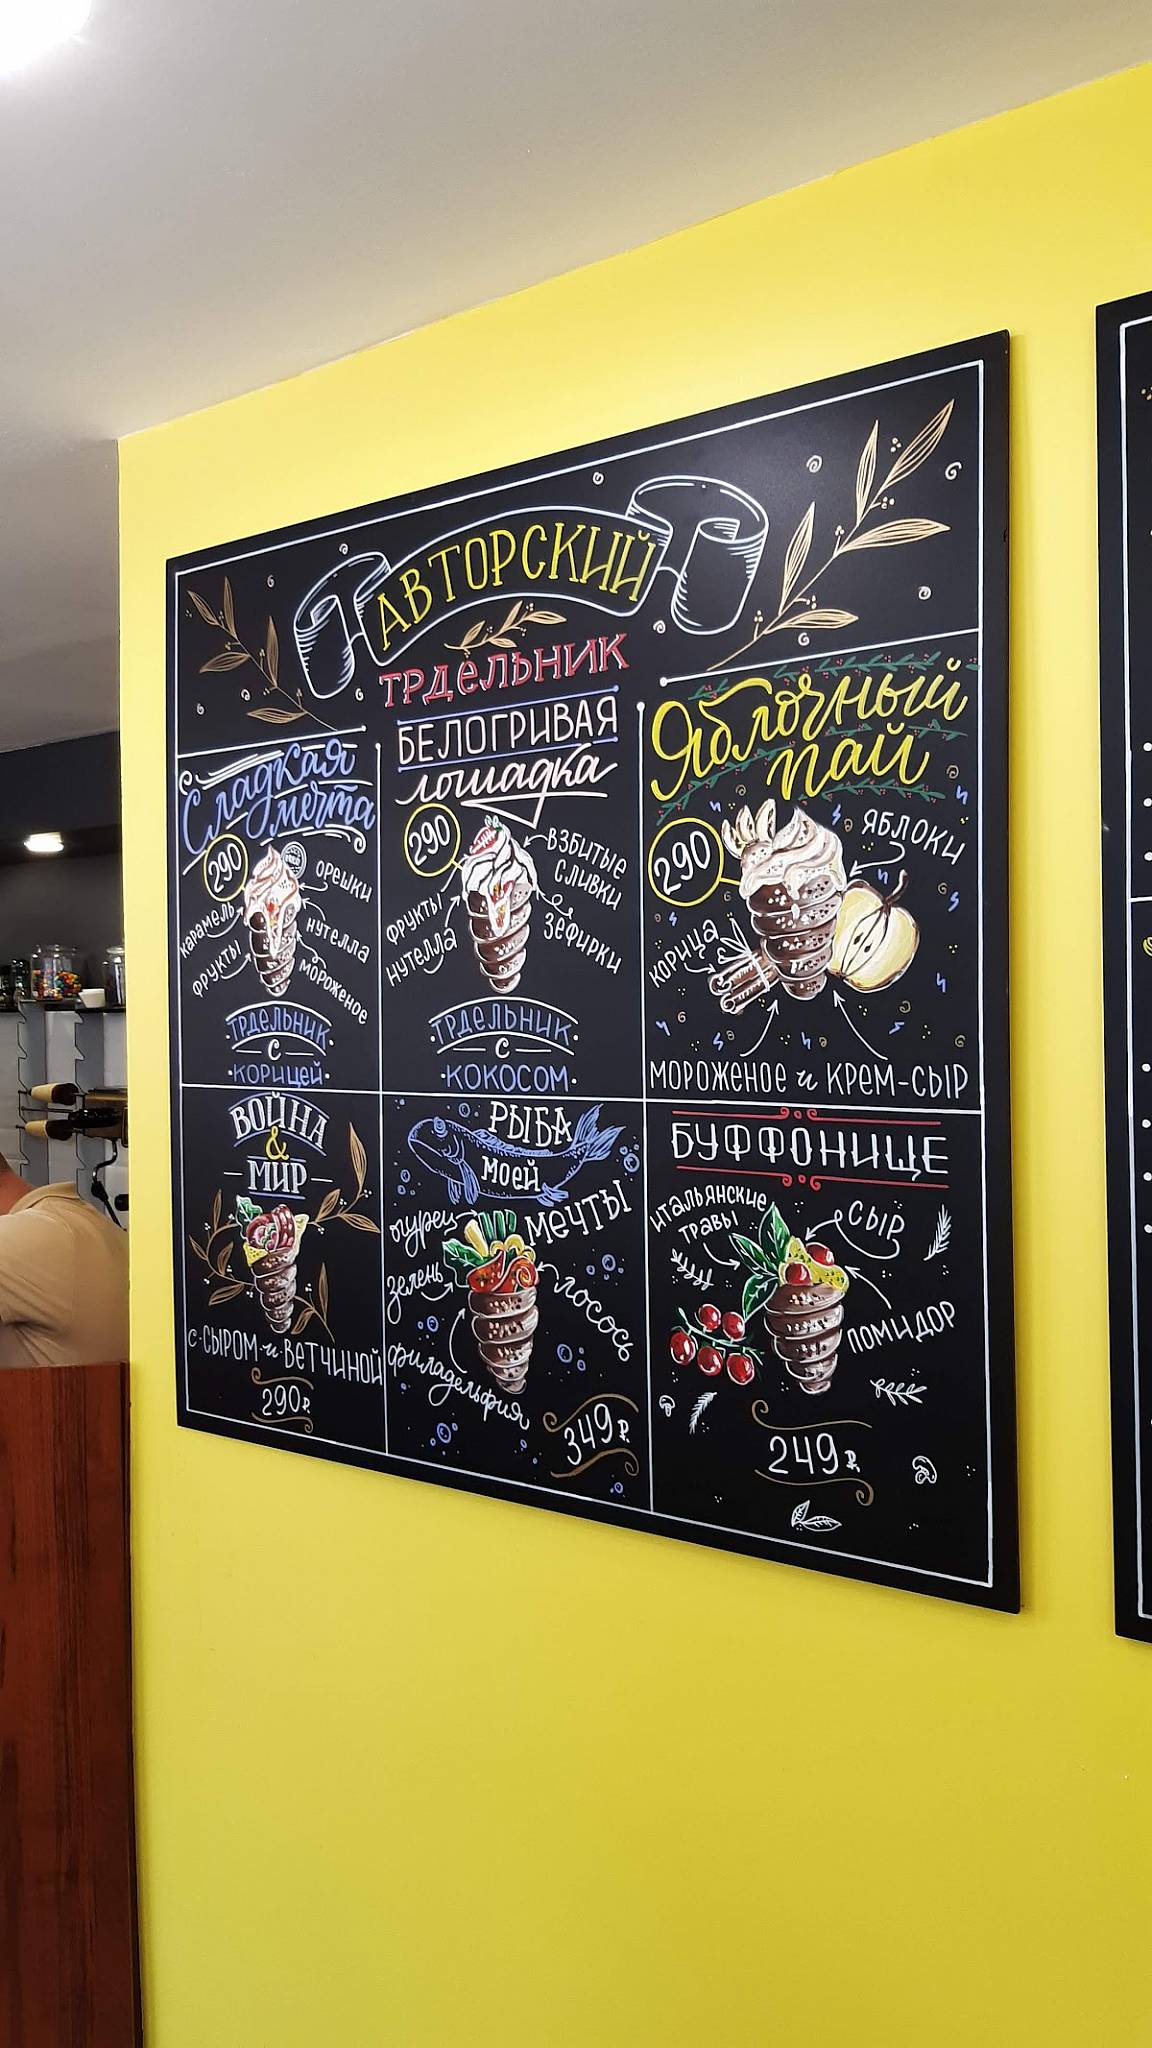 АВТОРСКИЙ
ТРДЕЛЬНИК
Сладкая
мечта
290
орешки
карамель
нутелла
фрукты
мороженое
ТРДЕЛЬНИК
С
КОРИЦЕЙ
БЕЛОГРИВАЯ
лошадка
290
взбитые
сливки
фрукты
нутелла
зефирки
ТРДЕЛЬНИК
С
КОКОСОМ
Яблочный
пай
290
ЯБЛОКИ
КОРИЦА
МОРОЖЕНОЕ и КРЕМ-СЫР
ВОЙНА
&
МИР
С СЫРОМ и ВЕТЧИНОЙ
290₽
РЫБА
МОЕЙ
МЕЧТЫ
огурец
зелень
лосось
филадельфия
349₽
БУФФОНИЩЕ
итальянские
травы
СЫР
ПОМИДОР
249₽